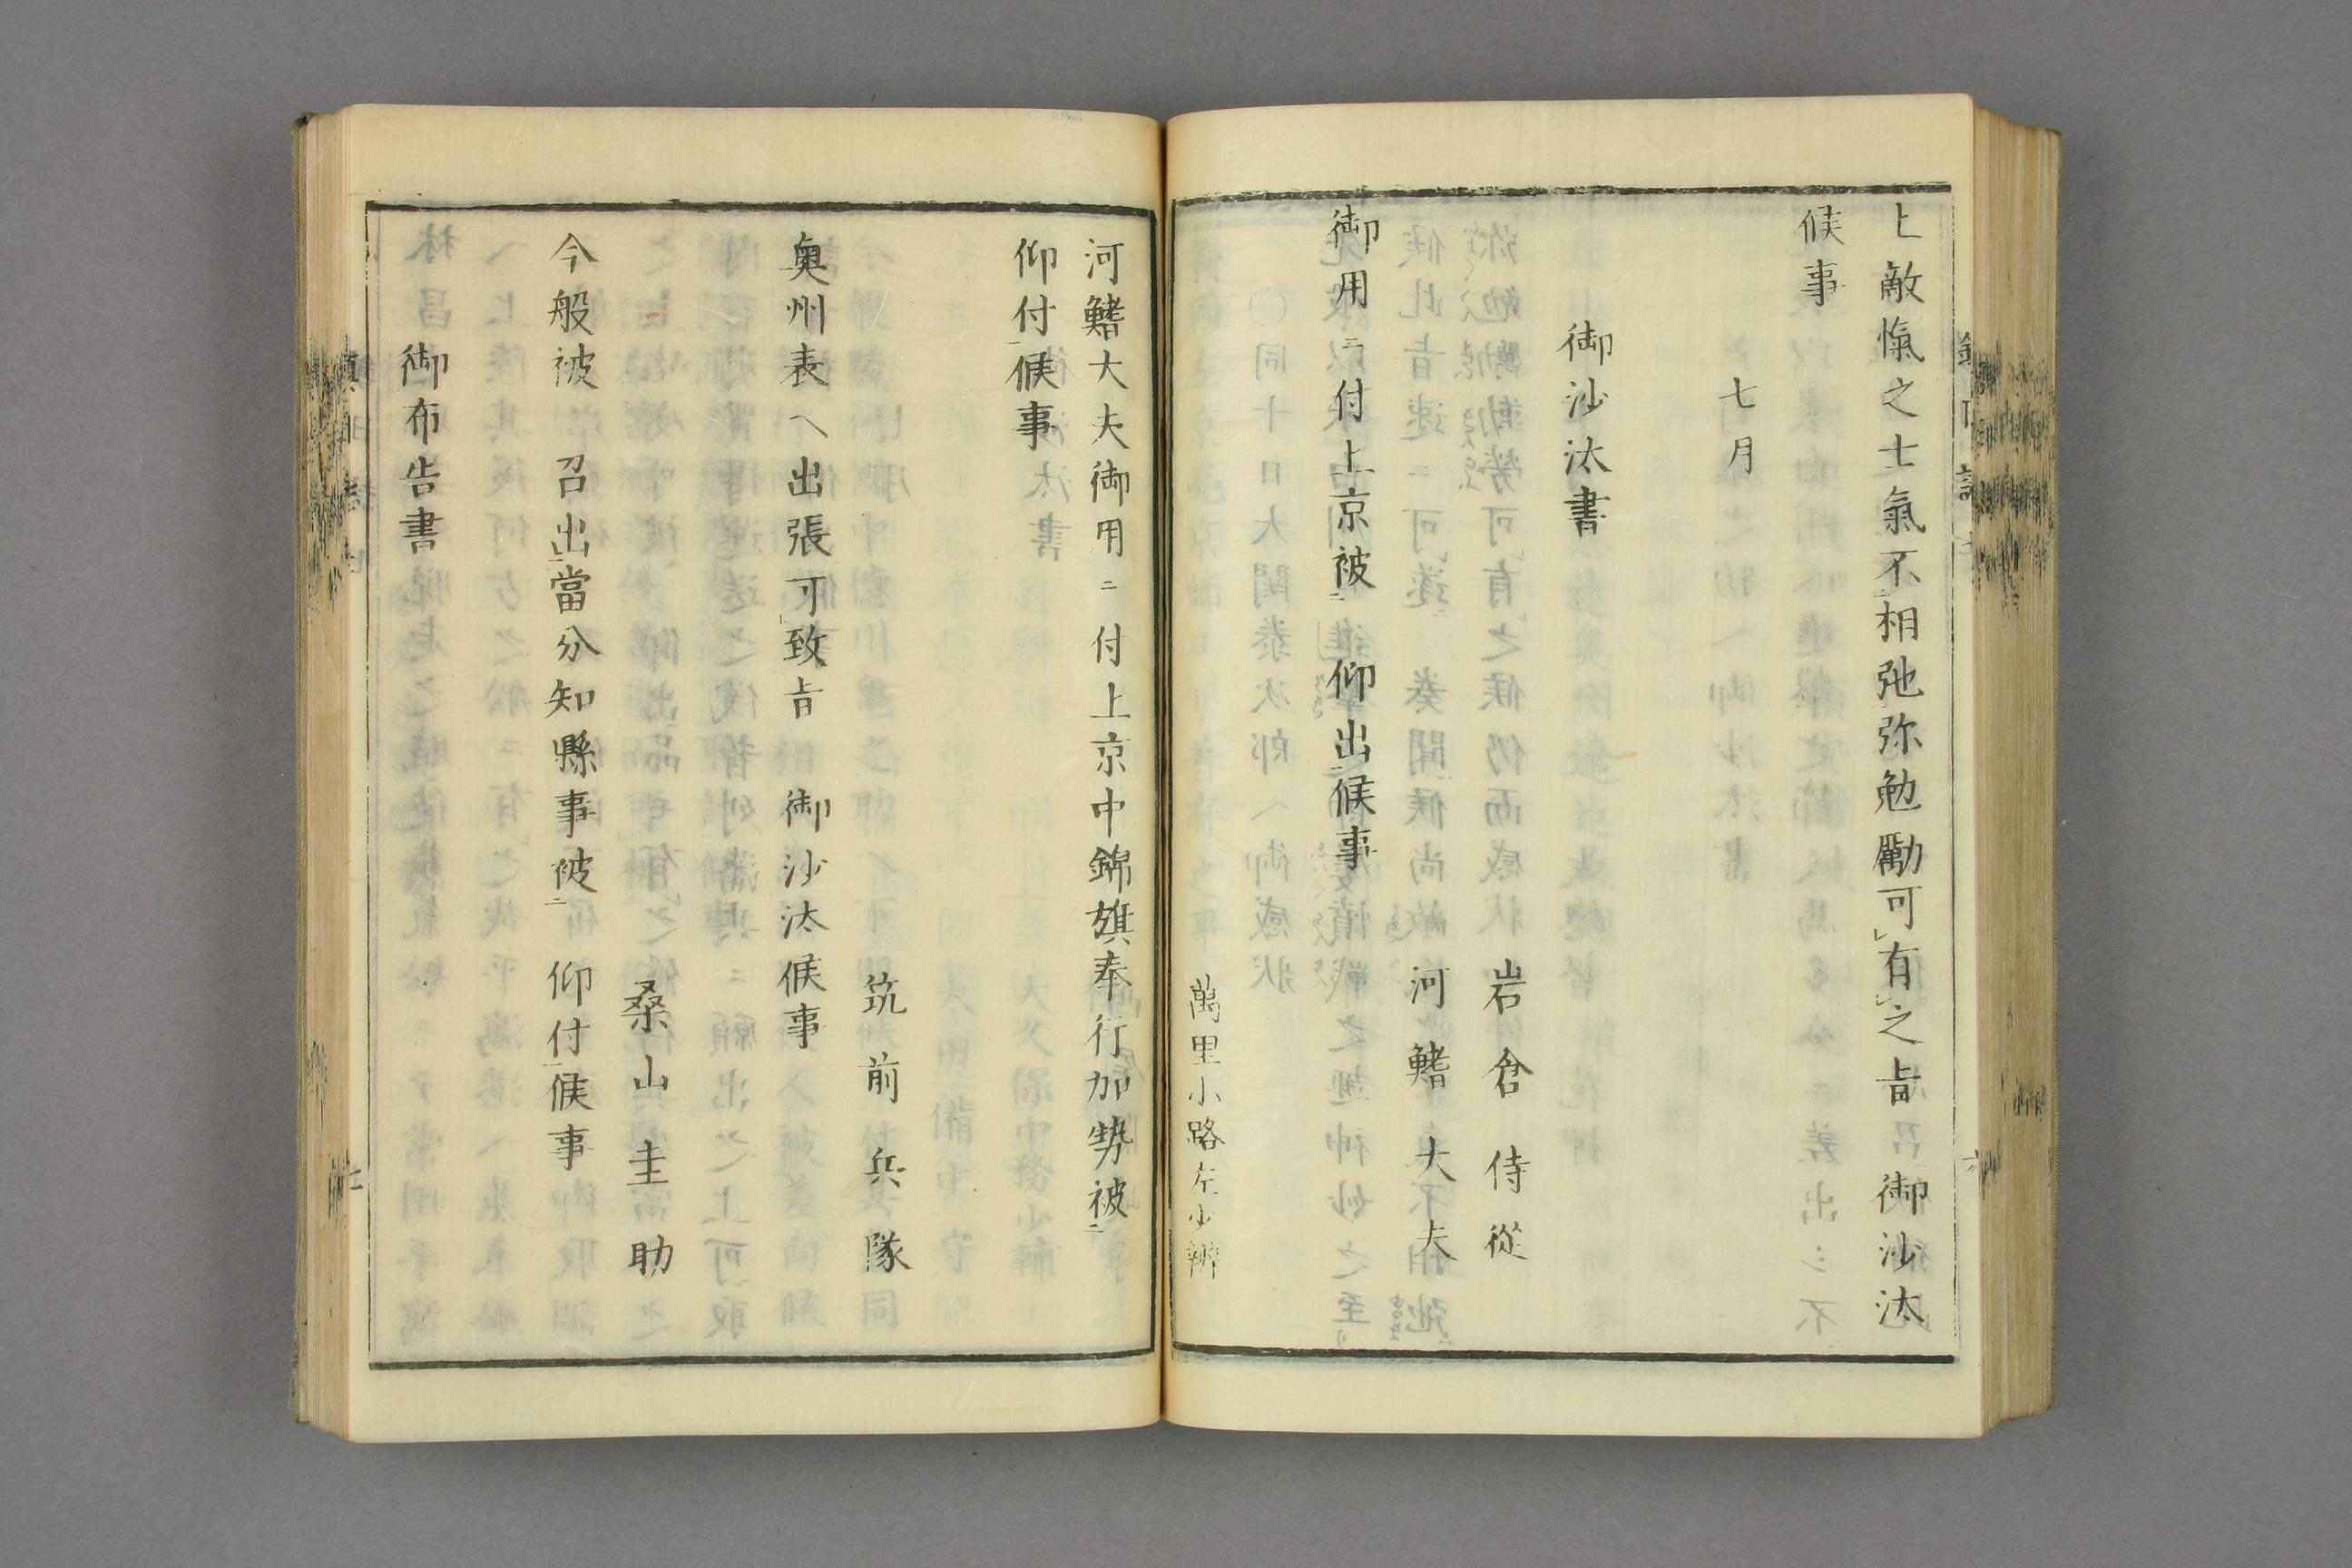 上敵愾之士氣不相弛弥勉勵可有之旨 御沙汰
候事
七月
御沙汰書
岩倉侍從
河鰭大夫
御用ニ付上京被 仰出候事
萬里小路左少辨
河鰭大夫御用ニ付上京中錦旗奉行加勢被
仰付候事
筑前兵隊
奥州表ヘ出張可致旨 御沙汰候事
桑山圭助
今般被 召出當分知縣事被 仰付候事
御布告書